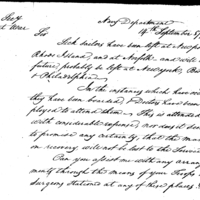 Secy
of War
Navy Department
14th September 9
Sir
Sick sailors have been left at Newpo
Rhode Island, and at Norfolk and will in
future, probably be left at Newyork, Bos
& Philadelphia.
In the instances which have occ
they have been boarded, & Doctors have been
ployed to attend them. This is attended
with considerable expense, nor does it seem
to promise any certainty, that the men
on recovery will not be lost to the Service.
Can you assist me with any arrang
ments through the means of your Troops
surgeons stationed at any of these places